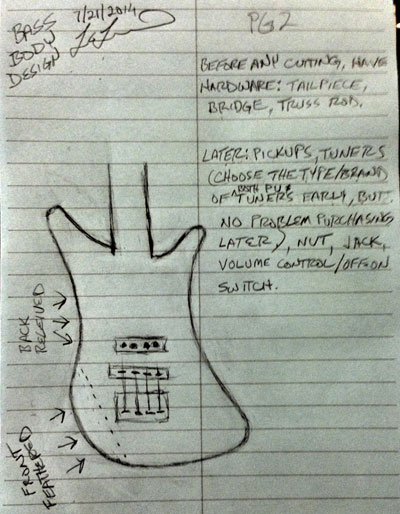 BASS
BODY
DESIGN
7/21/2014
PG 2
BEFORE ANY CUTTING, HAVE
HARDWARE: TAILPIECE,
BRIDGE, TRUSS ROD.
LATER: PICKUPS, TUNERS
(CHOOSE THE TYPE/BRAND
OF BOTH PU & TUNERS EARLY, BUT
NO PROBLEM PURCHASING
LATER), NUT, JACK,
VOLUME CONTROL/OFFON
SWITCH.
BACK
RECEIVED
FRONT
FEATHERED